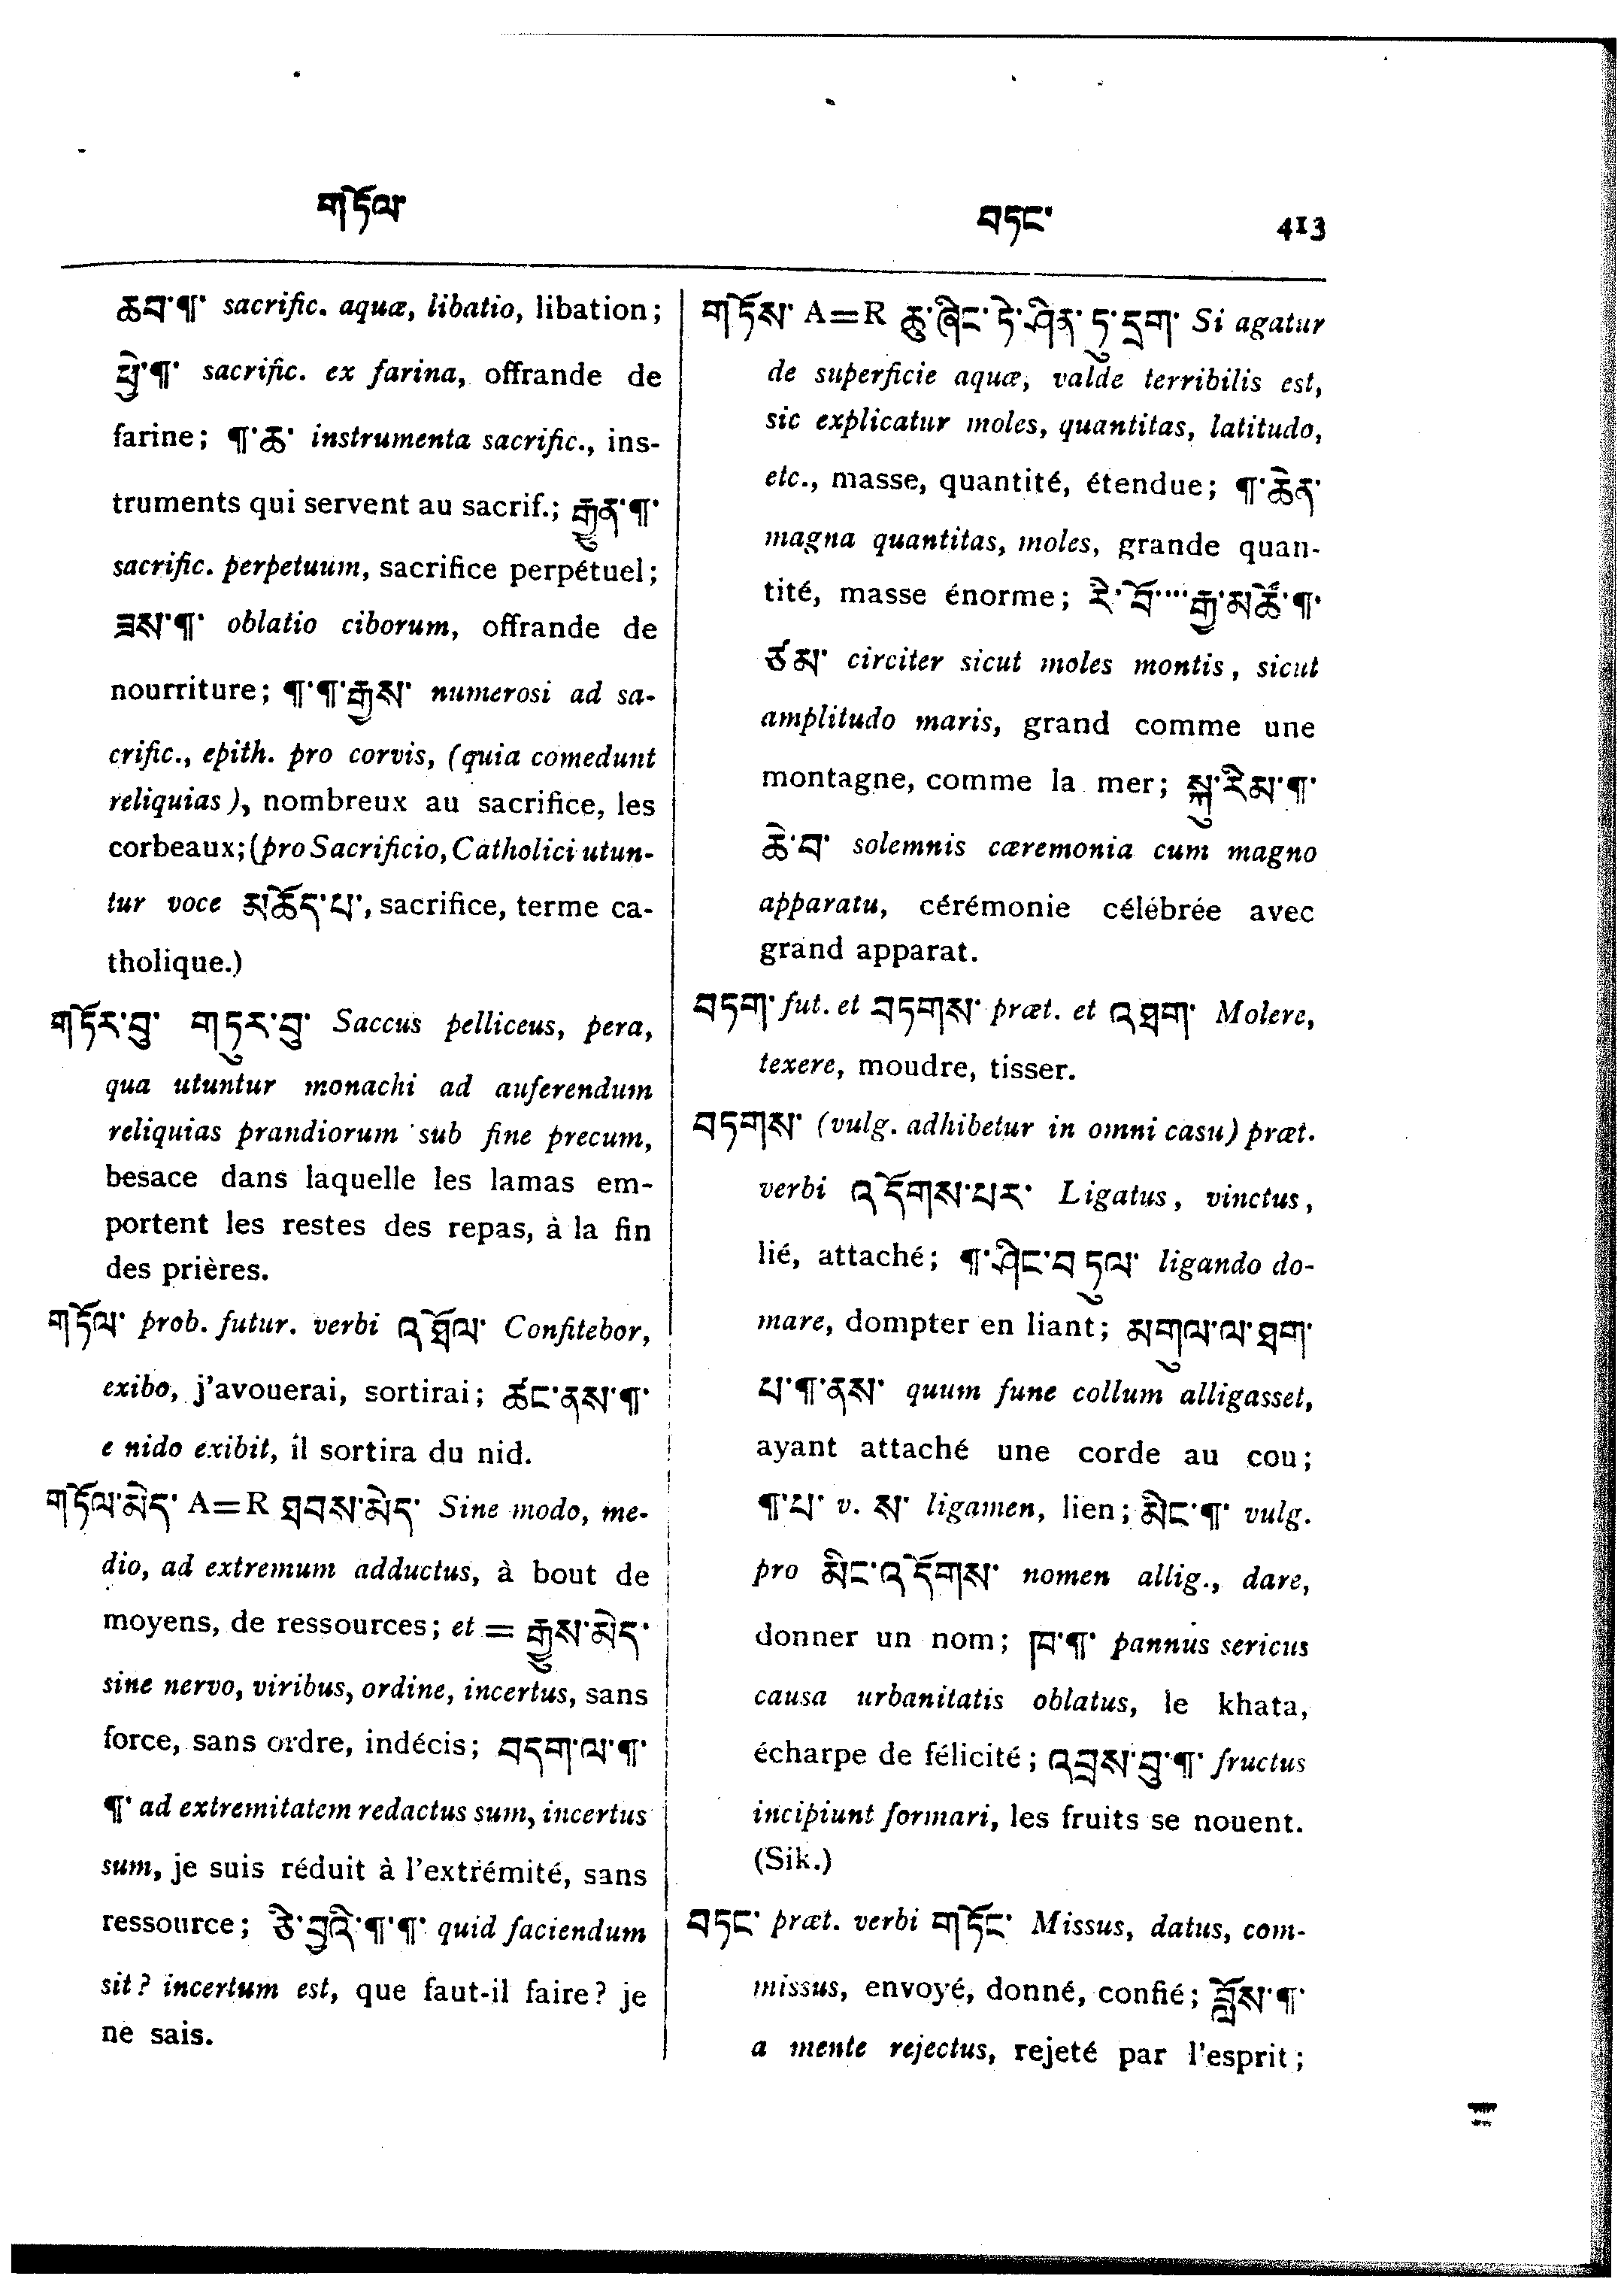 གཏོལ་
བཏང་ 413
ཆབ་¶་ sacrific. aquæ, libatio, libation;
ཕྱེ་¶་ sacrific. ex farina, offrande de
farine; ¶་ཆ་ instrumenta sacrific., ins-
truments qui servent au sacrif.; རྒྱུན་¶་
sacrific. perpetuum, sacrifice perpétuel;
ཟས་¶་ oblatio ciborum, offrande de
nourriture; ¶་¶་རྒྱས་ numerosi ad sa-
crific., epith. pro corvis, (quia comedunt
reliquias), nombreux au sacrifice, les
corbeaux; (pro Sacrificio, Catholici utun-
tur voce མཆོད་པ་, sacrifice, terme ca-
tholique.)
གཏོར་བུ་ གཏུར་བུ་ Saccus pelliceus, pera,
qua utuntur monachi ad auferendum
reliquias prandiorum sub fine precum,
besace dans laquelle les lamas em-
portent les restes des repas, à la fin
des prières.
གཏོལ་ prob. futur. verbi འཐོལ་ Confitebor,
exibo, j'avouerai, sortirai; ཚང་ནས་¶་
e nido exibit, il sortira du nid.
གཏོལ་མེད་ A=R ཐབས་མེད་ Sine modo, me-
dio, ad extremum adductus, à bout de
moyens, de ressources; et = རྒྱུས་མེད་
sine nervo, viribus, ordine, incertus, sans
force, sans ordre, indécis; བདག་ལ་¶་
¶་ ad extremitatem redactus sum, incertus
sum, je suis réduit à l'extrémité, sans
ressource; ཅེ་བྱའི་¶་¶་ quid faciendum
sit? incertum est, que faut-il faire? je
ne sais.
གཏོས་ A=R ཆུ་ཞིང་དེ་ཤིན་ཏུ་དྲག་ Si agatur
de superficie aquæ, valde terribilis est,
sic explicatur moles, quantitas, latitudo,
etc., masse, quantité, étendue; ¶་ཆེན་
magna quantitas, moles, grande quan-
tité, masse énorme; རི་བོ་···རྒྱ་མཚོ་¶་
ཙམ་ circiter sicut moles montis, sicut
amplitudo maris, grand comme une
montagne, comme la mer; སྐུ་རིམ་¶་
ཆེ་བ་ solemnis cæremonia cum magno
apparatu, cérémonie célébrée avec
grand apparat.
བཏག་ fut. et བཏགས་ præt. et འཐག་ Molere,
texere, moudre, tisser.
བཏགས་ (vulg. adhibetur in omni casu) præt.
verbi འདོགས་པར་ Ligatus, vinctus,
lié, attaché; ¶་ཤིང་བཏུལ་ ligando do-
mare, dompter en liant; མགུལ་ལ་ཐག་
པ་¶་ནས་ quum fune collum alligasset,
ayant attaché une corde au cou;
¶་པ་ v. ས་ ligamen, lien; མིང་¶་ vulg.
pro མིང་འདོགས་ nomen allig., dare,
donner un nom; ཁ་¶་ pannus sericus
causa urbanitatis oblatus, le khata,
écharpe de félicité; འབྲས་བུ་¶་ fructus
incipiunt formari, les fruits se nouent.
(Sik.)
བཏང་ præt. verbi གཏོང་ Missus, datus, com-
missus, envoyé, donné, confié; བློས་¶་
a mente rejectus, rejeté par l'esprit;